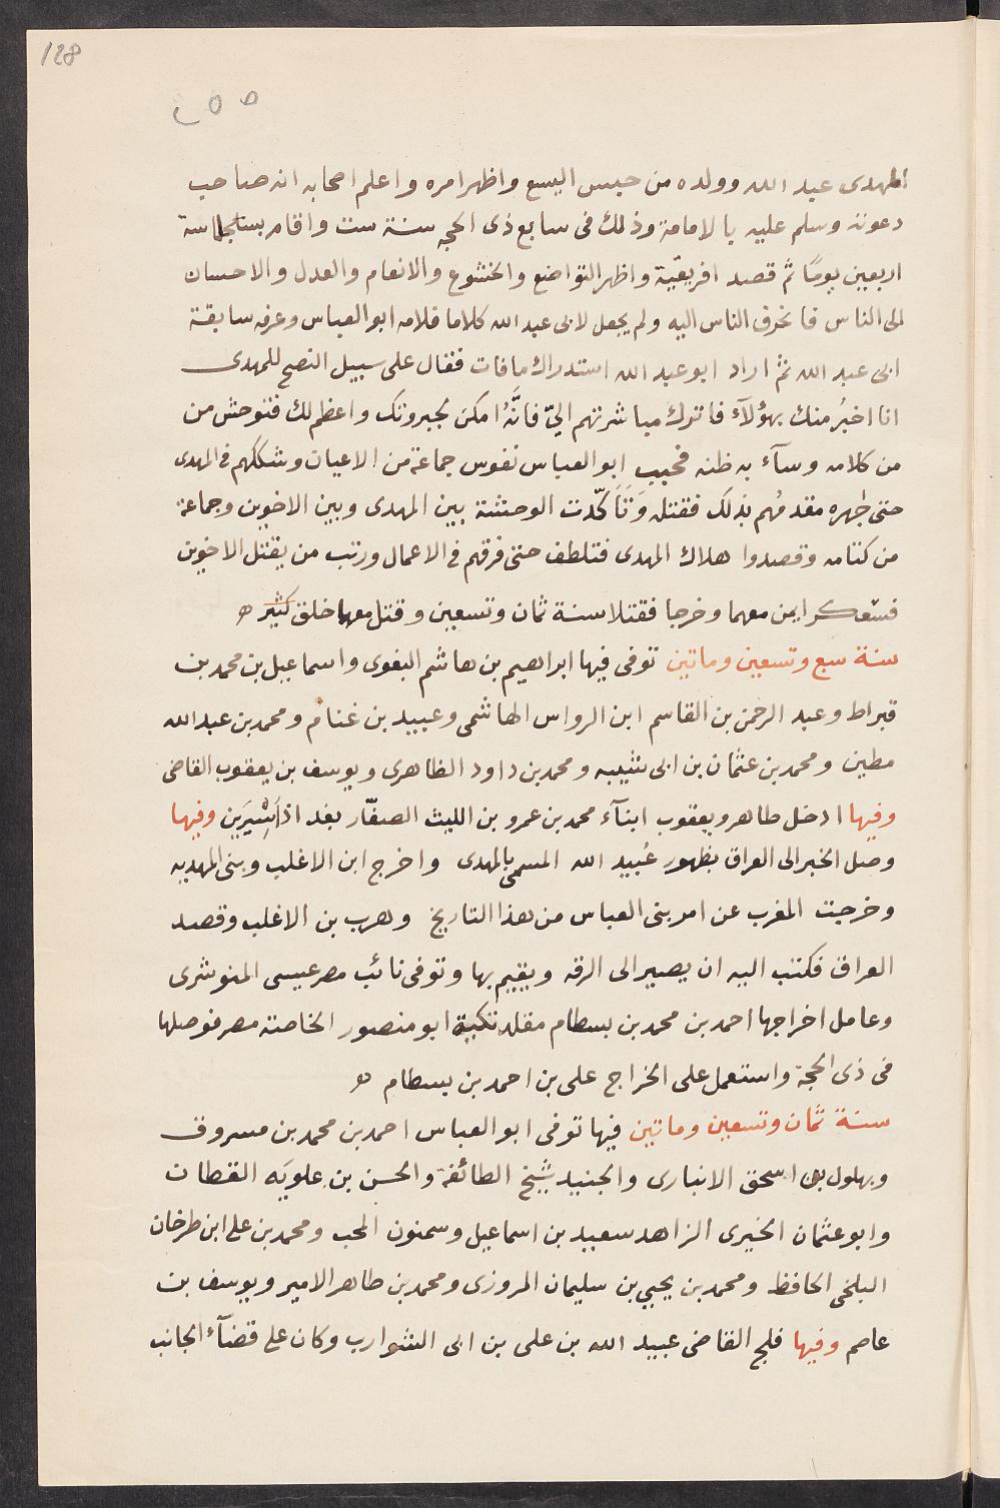 128
المهدى عبد الله وولده من حبس اليسع واظهر امره واعلم اصحابه انه صاحب
دعوته وسلم عليه بالامامة وذلك فى سابع ذى الحجه سنة ست واقام بسلجماسة
اربعين يومًا ثم قصد افريقيّة واظهر التواضع والخشوع والانعام والعدل والاحسان
الى الناس فانحرف الناس اليه ولم يجعل لابى عبد الله كلاما فلامه ابو العباس وعرفه سابقة
ابى عبد الله ثم اراد ابو عبد الله استدراك ما فات فقال على سبيل النصح للمهدى
انا اخبرُ منك بهؤلآء فاترك مباشرتهم اليّ فانَّهُ امكن لجبروتك واعظم لك فتوحش من
من كلامه وسآء به ظنه فخبب ابو العباس نفوس جماعة من الاعيان وشككهم فى المهدى
حتى جهره مقدمُهم بذلك فقتله وَتَأَكّدت الوحشة بين المهدى وبين الاخوين وجماعة
من كتامه وقصدوا هلاك المهدى فتلطف حتى فرقهم فى الاعمال ورتب من يقتل الاخوين
فتعسكرا بمن معهما وخرجا فقتلا سنة ثمان وتسعين وقتل معهما خلق كثير ه
سنة سبع وتسعين وماتين توفى فيها ابراهيم بن هاشم البغوى واسماعيل بن محمد بن
قيراط وعبد الرحمن بن القاسم ابن الرواس الهاشمى وعبيد بن غنام ومحمد بن عبد الله
مطين ومحمد بن عثمان بن ابى شيبه ومحمد بن داود الظاهرى ويوسف بن يعقوب القاضى
وفيها ادخل طاهر ويعقوب ابنآء محمد بن عمرو بن الليث الصفّار بغداذ اَسِيْرَين وفيها
وصل الخبر الى العراق بظهور عُبيد الله المسمى بالمهدى واخرج ابن الاغلب وبنى المهديه
وخرجت المغرب عن امر بنى العباس من هذا التاريخ وهرب بن الاغلب وقصد
العراق فكتب اليه ان يصير الى الرقه ويقيم بها وتوفى نائب مصر عيسى المنوشرى
وعامل اخراجها احمد بن محمد بن بسطام مقلد تكبية ابو منصور الخاصته مصر فوصلها
فى ذى الحجة واستعمل على الخراج على بن احمد بن بسطام ه
سنة ثمان وتسعين وماتين فيها توفى ابو العباس احمد بن محمد بن مسروق
وبهلول بن اسحق الانبارى والجنيد شيخ الطائفة والحسن بن علويَه القطان
وابو عثمان الخيرى الزاهد سعيد بن اسماعيل وسمنون المحب ومحمد بن على ابن طرخان
البلخى الحافظ ومحمد بن يحيى بن سليمان المروزى ومحمد بن طاهر الامير ويوسف بن
عاصم وفيها فلج القاضى عبيد الله بن على بن ابى الشوارب وكان على قضآء الجانب